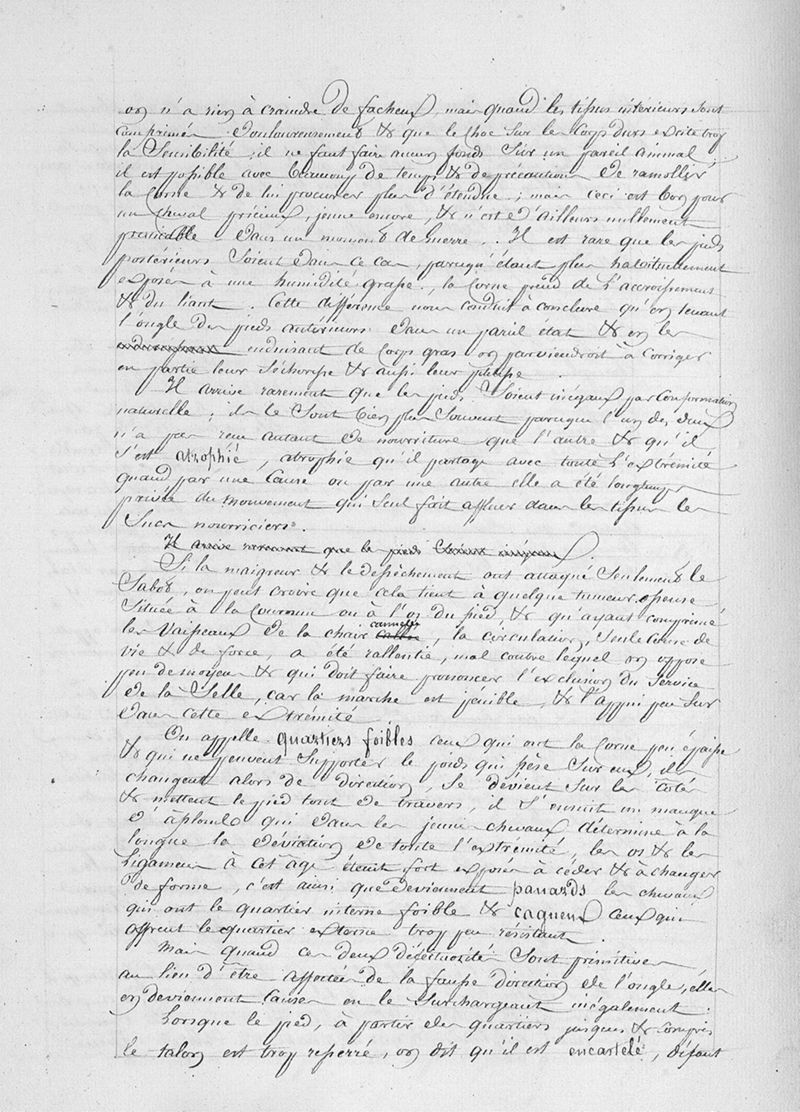 on n'a rien à craindre de facheux, mais quand les tissus intérieurs sont
comprimés douloureusement & que le choc sur les corps durs excite trop
la sensibilité, il ne faut faire aucun fonds sur un pareil animal,
il est possible avec beaucoup de temps & de précautions de ramollir
la corne & de lui procurer plus d'étendue ; mais ceci est bon pour
un cheval précieux, jeune encore, & n'est d'ailleurs nullement
praticable dans un moment de guerre. Il est rare que les pieds
postérieurs soient dans ce cas, parcequ'étant plus habituellement
exposés à une humidité grasse, la corne prend de l'accroissement
& du liant. Cette différence nous conduit à conclure qu'en tenant
l'ongle des pieds antérieurs dans un pareil état & en les
enduisant de corps gras on parviendroit à corriger
en partie leur sécheresse & aussi leur petitesse.
Il arrive rarement que les pieds soient inégaux par conformation
naturelle ; ils le sont bien plus souvent parceque l'un des deux
n'a pas reçu autant de nourriture que l'autre & qu'il
s'est atrophié, atrophie qu'il partage avec toute l'extrémité
quand par une cause ou par une autre elle a été longtemps
privée du mouvement qui seul fait affluer dans les tissus les
sucs nourriciers.
Il arrive rarement que les pieds soient inégaux.
Si la maigreur & le déssèchement ont attaqué seulement le
sabot, on peut croire que cela tient à quelque tumeur osseuse
située à la couronne ou à l'os du pied & qu'ayant comprimé
les vaisseaux de la chair cannelée, la circulation, seule cause de
vie & de force, a été rallentie, mal contre lequel on oppose
peu de moyens & qui doit faire prononcer l'exclusion du service
de la selle, car la marche est pénible, & l'appui peu sur
dans cette extrémité.
On appelle quartiers foibles ceux qui ont la corne peu épaisse
& qui ne peuvent supporter le poids qui pèse sur eux, ils
changent alors de direction, se dévient sur les côtés
& mettent le pied tout de travers, il s'ensuit un manque
d'àplomb qui dans les jeunes chevaux détermine à la
longue la déviation de toute l'extrémité, les os & les
ligamens à cet âge étant fort exposés à céder & à changer
de forme, c'est ainsi que deviennent panards les chevaux
qui ont le quartier interne foible & cagneux ceux qui
offrent le quartier externe trop peu résistant.
Mais quand ces deux défectuosités sont primitives
au lieu d'être apportées de la fausse direction de l'ongle, elles
en deviennent causes en le surchargeant inégalement.
Lorsque le pied, à partir des quartiers jusques & compris
le talon est trop resserré, on dit qu'il est encastelé, défaut